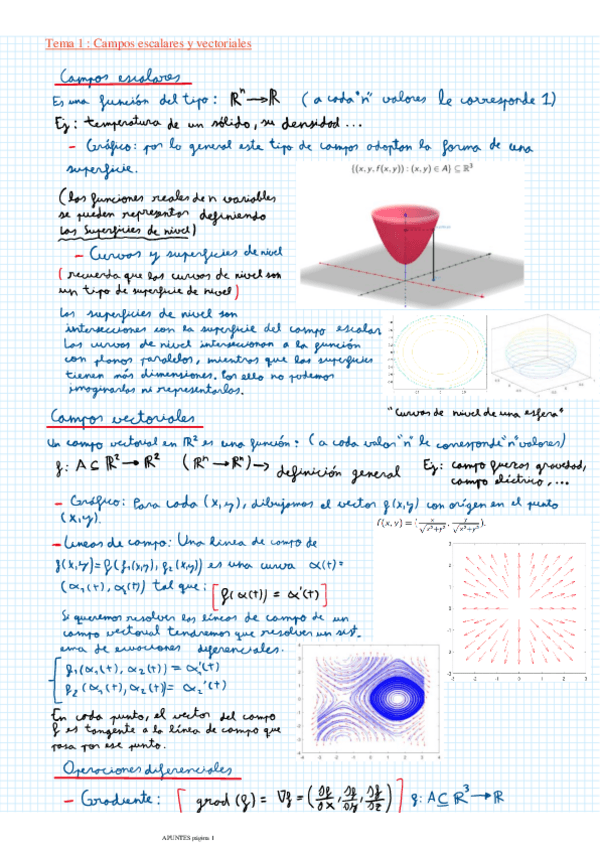 Tema 1 : Campos escalares y vectoriales
Campos escalares
Es una función del tipo: ℝⁿ→ℝ (a cada "n" valores le corresponde 1)
Ej: temperatura de un sólido, su densidad ...
- Gráfico: por lo general este tipo de campos adoptan la forma de una
superficie.
{(x, y, f(x, y)) : (x, y) ∈ A} ⊆ ℝ³
(las funciones reales de n variables
se pueden representar definiendo
las superficies de nivel)
- Curvas y superficies de nivel
(recuerda que las curvas de nivel son
un tipo de superficie de nivel)
Las superficies de nivel son
intersecciones con la superficie del campo escalar
Las curvas de nivel intersecionan a la función
con planos paralelos, mientras que las superficies
tienen más dimensiones. Por ello no podemos
imaginarlas ni representarlas.
"Curvas de nivel de una esfera"
Campos vectoriales
Un campo vectorial en ℝ² es una función: (a cada valor "n" le corresponde "n" valores)
f: A ⊆ ℝ² → ℝ² (ℝⁿ → ℝⁿ) → definición general
Ej: campo fuerzas gravedad,
campo eléctrico, ...
- Gráfico: Para cada (x, y), dibujamos el vector f(x,y) con origen en el punto
(x, y).
f(x, y) = (x/√(x²+y²), y/√(x²+y²)).
- Líneas de campo: Una línea de campo de
f(x,y) = f(f₁(x,y), f₂(x,y)) es una curva α(t) =
(α₁(t), α₂(t)) tal que: [f(α(t)) = α'(t)]
Si queremos resolver las líneas de campo de un
campo vectorial tendremos que resolver un sist.
ema de ecuaciones diferenciales.
f₁(α₁(t), α₂(t)) = α₁'(t)
f₂(α₁(t), α₂(t)) = α₂'(t)
En cada punto, el vector del campo
f es tangente a la línea de campo que
pasa por ese punto.
Operaciones diferenciales
- Gradiente: [grad(f) = ∇f = (∂f/∂x, ∂f/∂y, ∂f/∂z)] f: A ⊆ ℝ³ → ℝ
APUNTES página 1